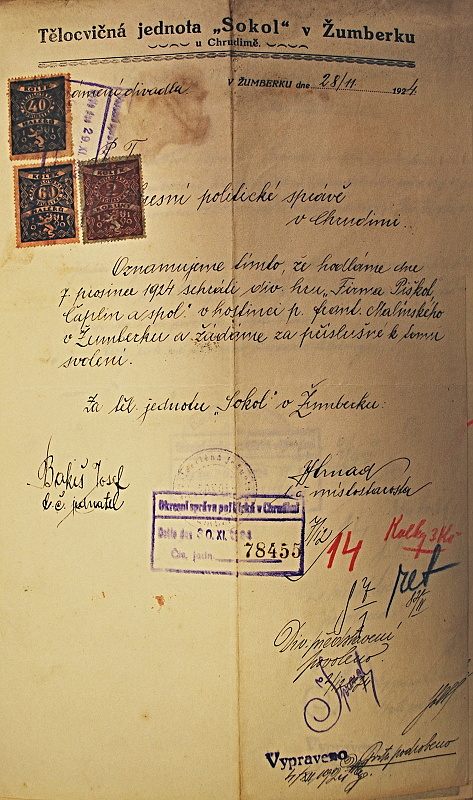 Tělocvičná jednota „Sokol“ v Žumberku
u Chrudimě.
V ŽUMBERKU dne 28/11 1924
divadla
40
HALÉŘŮ
KOLEK
60
HALÉŘŮ
KOLEK
2
P. T.
politické správě
v Chrudimi.
Oznamujeme tímto, že hodláme dne
7 prosince 1924 sehráti div. hru „Firma Piškol,
Caplin a spol.“ v hostinci p. Frant. Malinského
v Žumberku a žádáme za příslušné k tomu
svolení.
Za těl. jednotu „Sokol“ v Žumberku:
Bakeš Josef
t. č. jednatel
místostarosta
Okresní správa politická v Chrudimi
Došlo dne 30. XI. 1924
Čís. jedn. 78455
7/12
14
Kolky 3 Kč
ref
Div. představení
povoleno.
Vypraveno